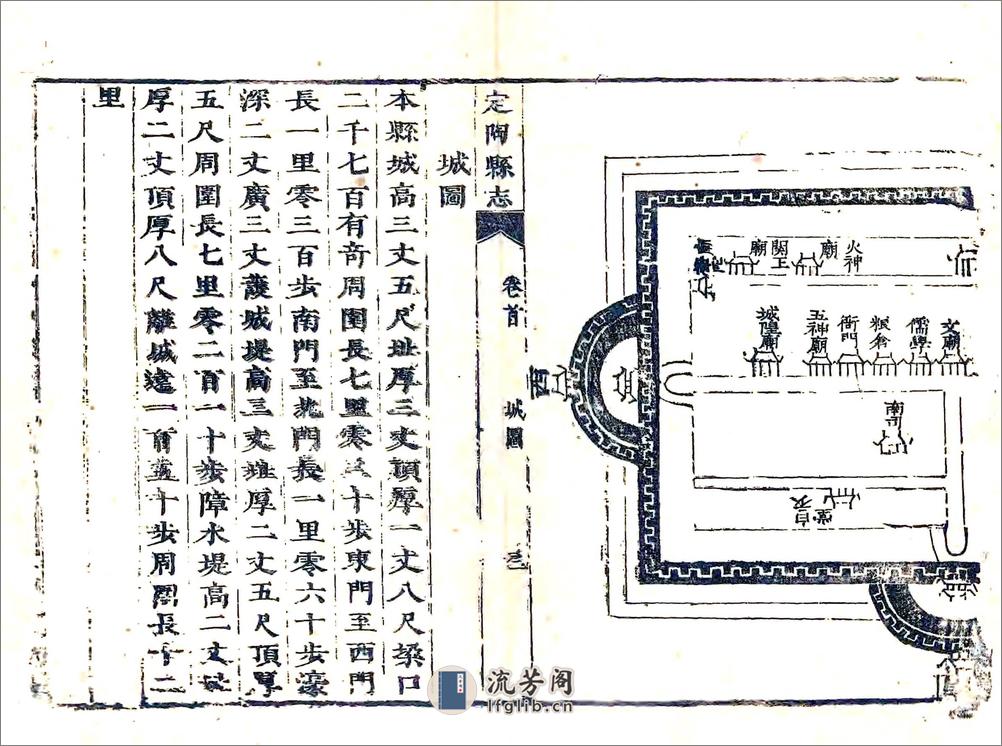 火神
廟
關王
廟
文廟
儒學
粮倉
衙門
五神廟
城隍廟
南司
西
定陶縣志
卷首
城圖
城圖
本縣城高三丈五尺址厚三丈頂厚一丈八尺垜口
二千七百有竒周圍長七里零三十步東門至西門
長一里零三百步南門至北門長一里零六十步濠
深二丈廣三丈護城堤高三丈址厚二丈五尺頂厚
五尺周圍長七里零二百一十步障水堤高二丈址
厚二丈頂厚八尺離城遠一百五十步周圍長十二
里
流芳阁
lfglib.cn